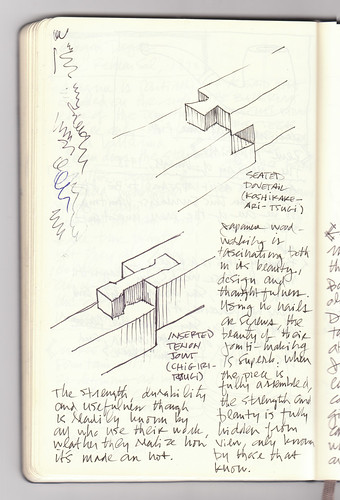 SEATED
DOVETAIL
(KOSHIKAKE-
ARI-TSUGI)
Japanese wood-
working is
fascinating both
in its beauty,
design and
thoughtfulness.
Using no nails
or screws the
beauty of their
joint-making
is superb. When
the piece is
fully assembled,
the strength and
beauty is fully
hidden from
view, only known
by those that
know.
INSERTED
TENON
JOINT
(CHIGIRI-
TSUGI)
The strength, durability
and usefulness though
is readily known by
all who use their work,
weather they realize how
it's made or not.